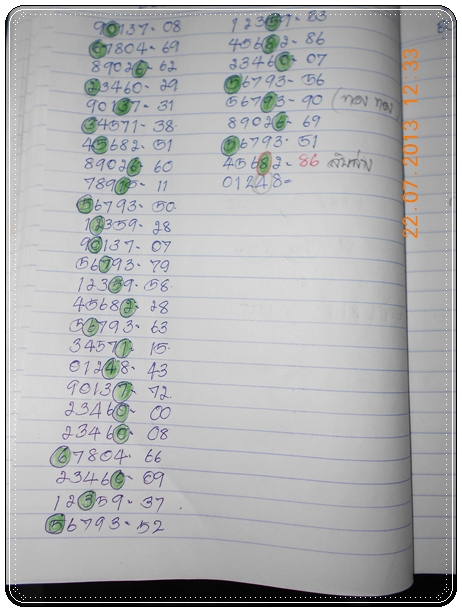 90137- 08
67804- 69
89026- 62
23460- 29
90137- 31
34571- 38
45682- 51
89026- 60
78915- 11
56793- 50
12359- 28
90137- 07
56793- 79
12359- 58
45682- 28
56793- 63
34571- 15
01248- 43
90137- 72
23460- 00
23460- 08
67804- 66
23460- 69
12359- 37
56793- 52
12359- 83
45682- 86
23460- 07
56793- 56
56793- 90
89026- 69
56793- 51
45682- 86
01248=
22.07.2013 12:33